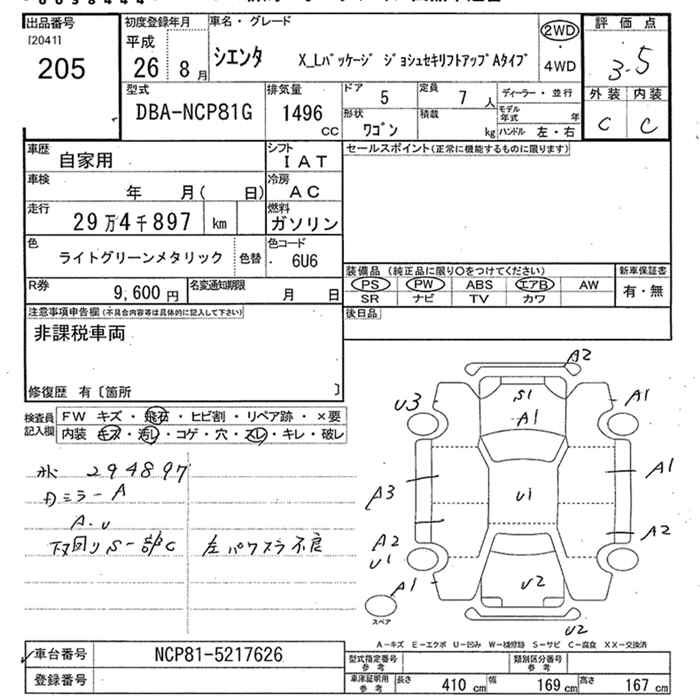 出品番号
[20411
205
初度登録年月
平成
26 8月
車名・グレード
シエンタ
X_Lパッケージ ジョシュセキリフトアップAタイプ
2WD
・
4WD
評価点
3.5
外装 内装
C C
型式
DBA-NCP81G
排気量
1496
CC
ドア
5
定員
7 人
形状
ワゴン
積載
kg
ディーラー・並行
モデル年式 年
ハンドル 左・右
車歴
自家用
シフト
I A T
車検
年 月( 日)
冷房
A C
走行
29万4千897 km
燃料
ガソリン
色
ライトグリーンメタリック
色替
色コード
6U6
R券
9,600 円
名変通知期限
月 日
セールスポイント(正常に機能するものに限ります)
装備品 (純正品に限り○をつけてください)
新車保証書
PS PW ABS エアB AW
SR ナビ TV カワ
有・無
後日品
注意事項申告欄(不具合内容等は具体的に記入して下さい)
非課税車両
修復歴 有〔箇所 〕
検査員記入欄
FW キズ・飛石・ヒビ割・リペア跡・×要
内装 キズ・汚レ・コゲ・穴・スレ・キレ・破レ
294897
ミラーA
A.U
下回りS一部C 左パワスラ不良
A2
S1
A1
A1
U3
A1
A3
U1
A2
A2
U1
A1
U2
U2
スペア
A-キズ E-エクボ U-凹み W-補修跡 S-サビ C-腐食 XX-交換済
車台番号
NCP81-5217626
登録番号
型式指定番号 参考
類別区分番号 参考
車庫証明用 参考
長さ 410 cm 幅 169 cm 高さ 167 cm